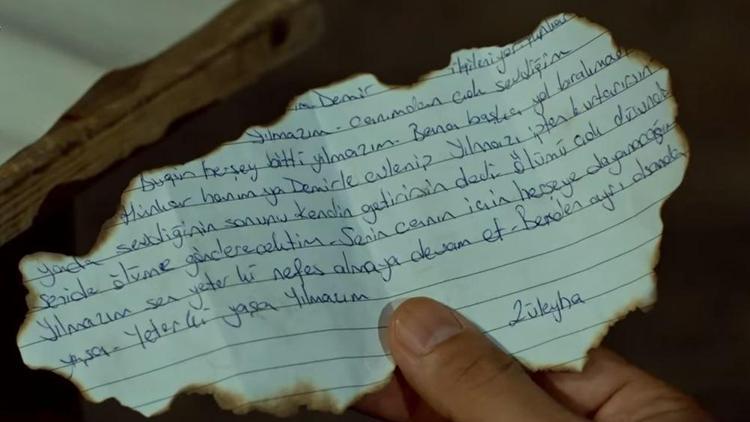 ilgileniyor bunlar
Demir
Yılmazım. canımdan çok sevdiğim
bugün herşey bitti yılmazım. Bana başka yol bırakmadı
Hünkar hanım ya Demirle evlenip Yılmazı ipten kurtarırsın
yada sevdiğinin sonunu kendin getirirsin dedi. Ölümü çok düşündüm
senide ölüme gönderecektim. Senin canın için herşeye dayanacağım
Yılmazım sen yeter ki nefes almaya devam et. Benden ayrı olsanda
yaşa. Yeter ki yaşa Yılmazım
Züleyha